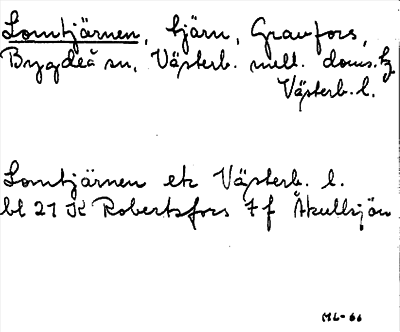 Lomtjärnen, tjärn, Granfors,
Bygdeå sn, Västerb. mell. doms.
Västerb. l.
Lomtjärnen ek Västerb. l.
bl 21 K Robertsfors 7 f Åkullsjön
ML-66